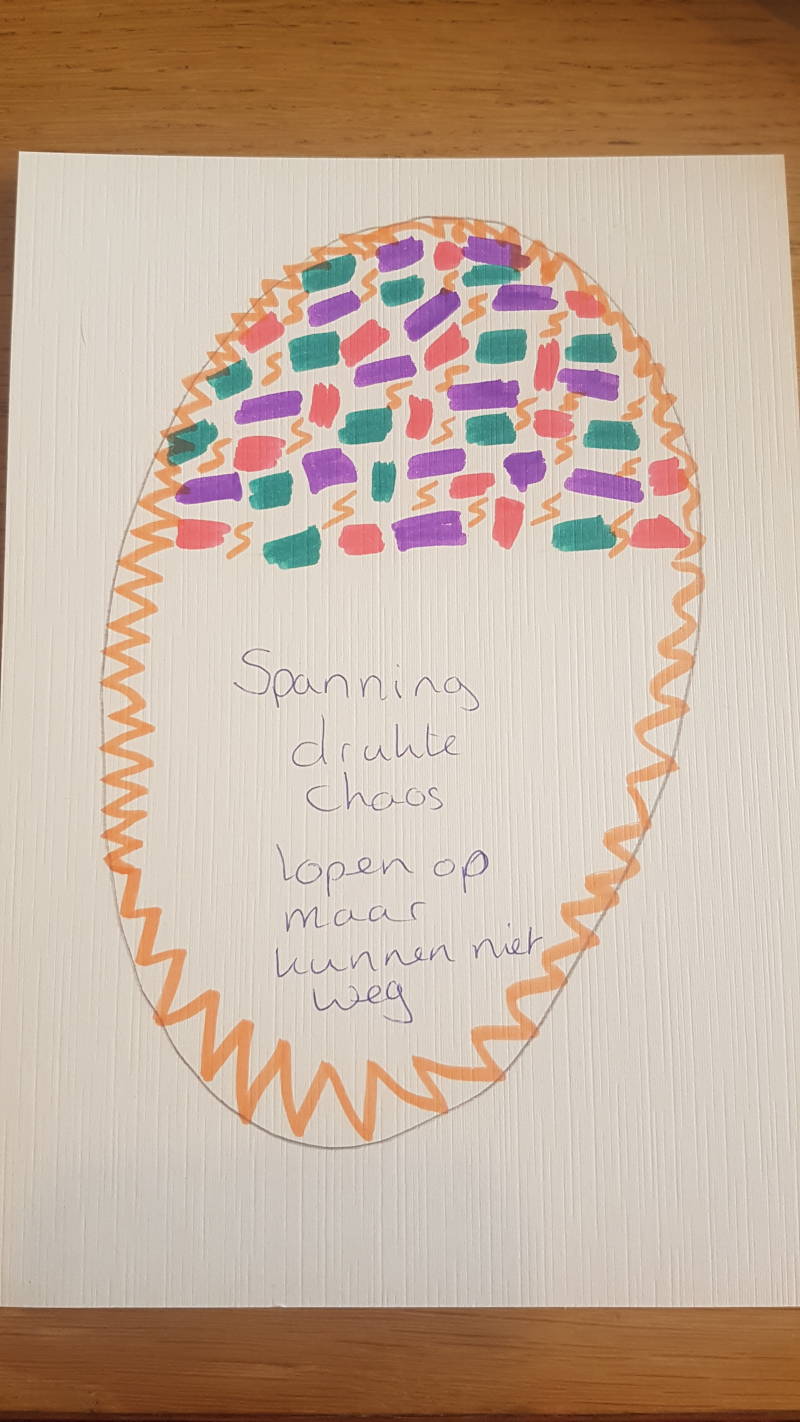 Spanning
drukte
chaos
lopen op
maar
kunnen niet
weg